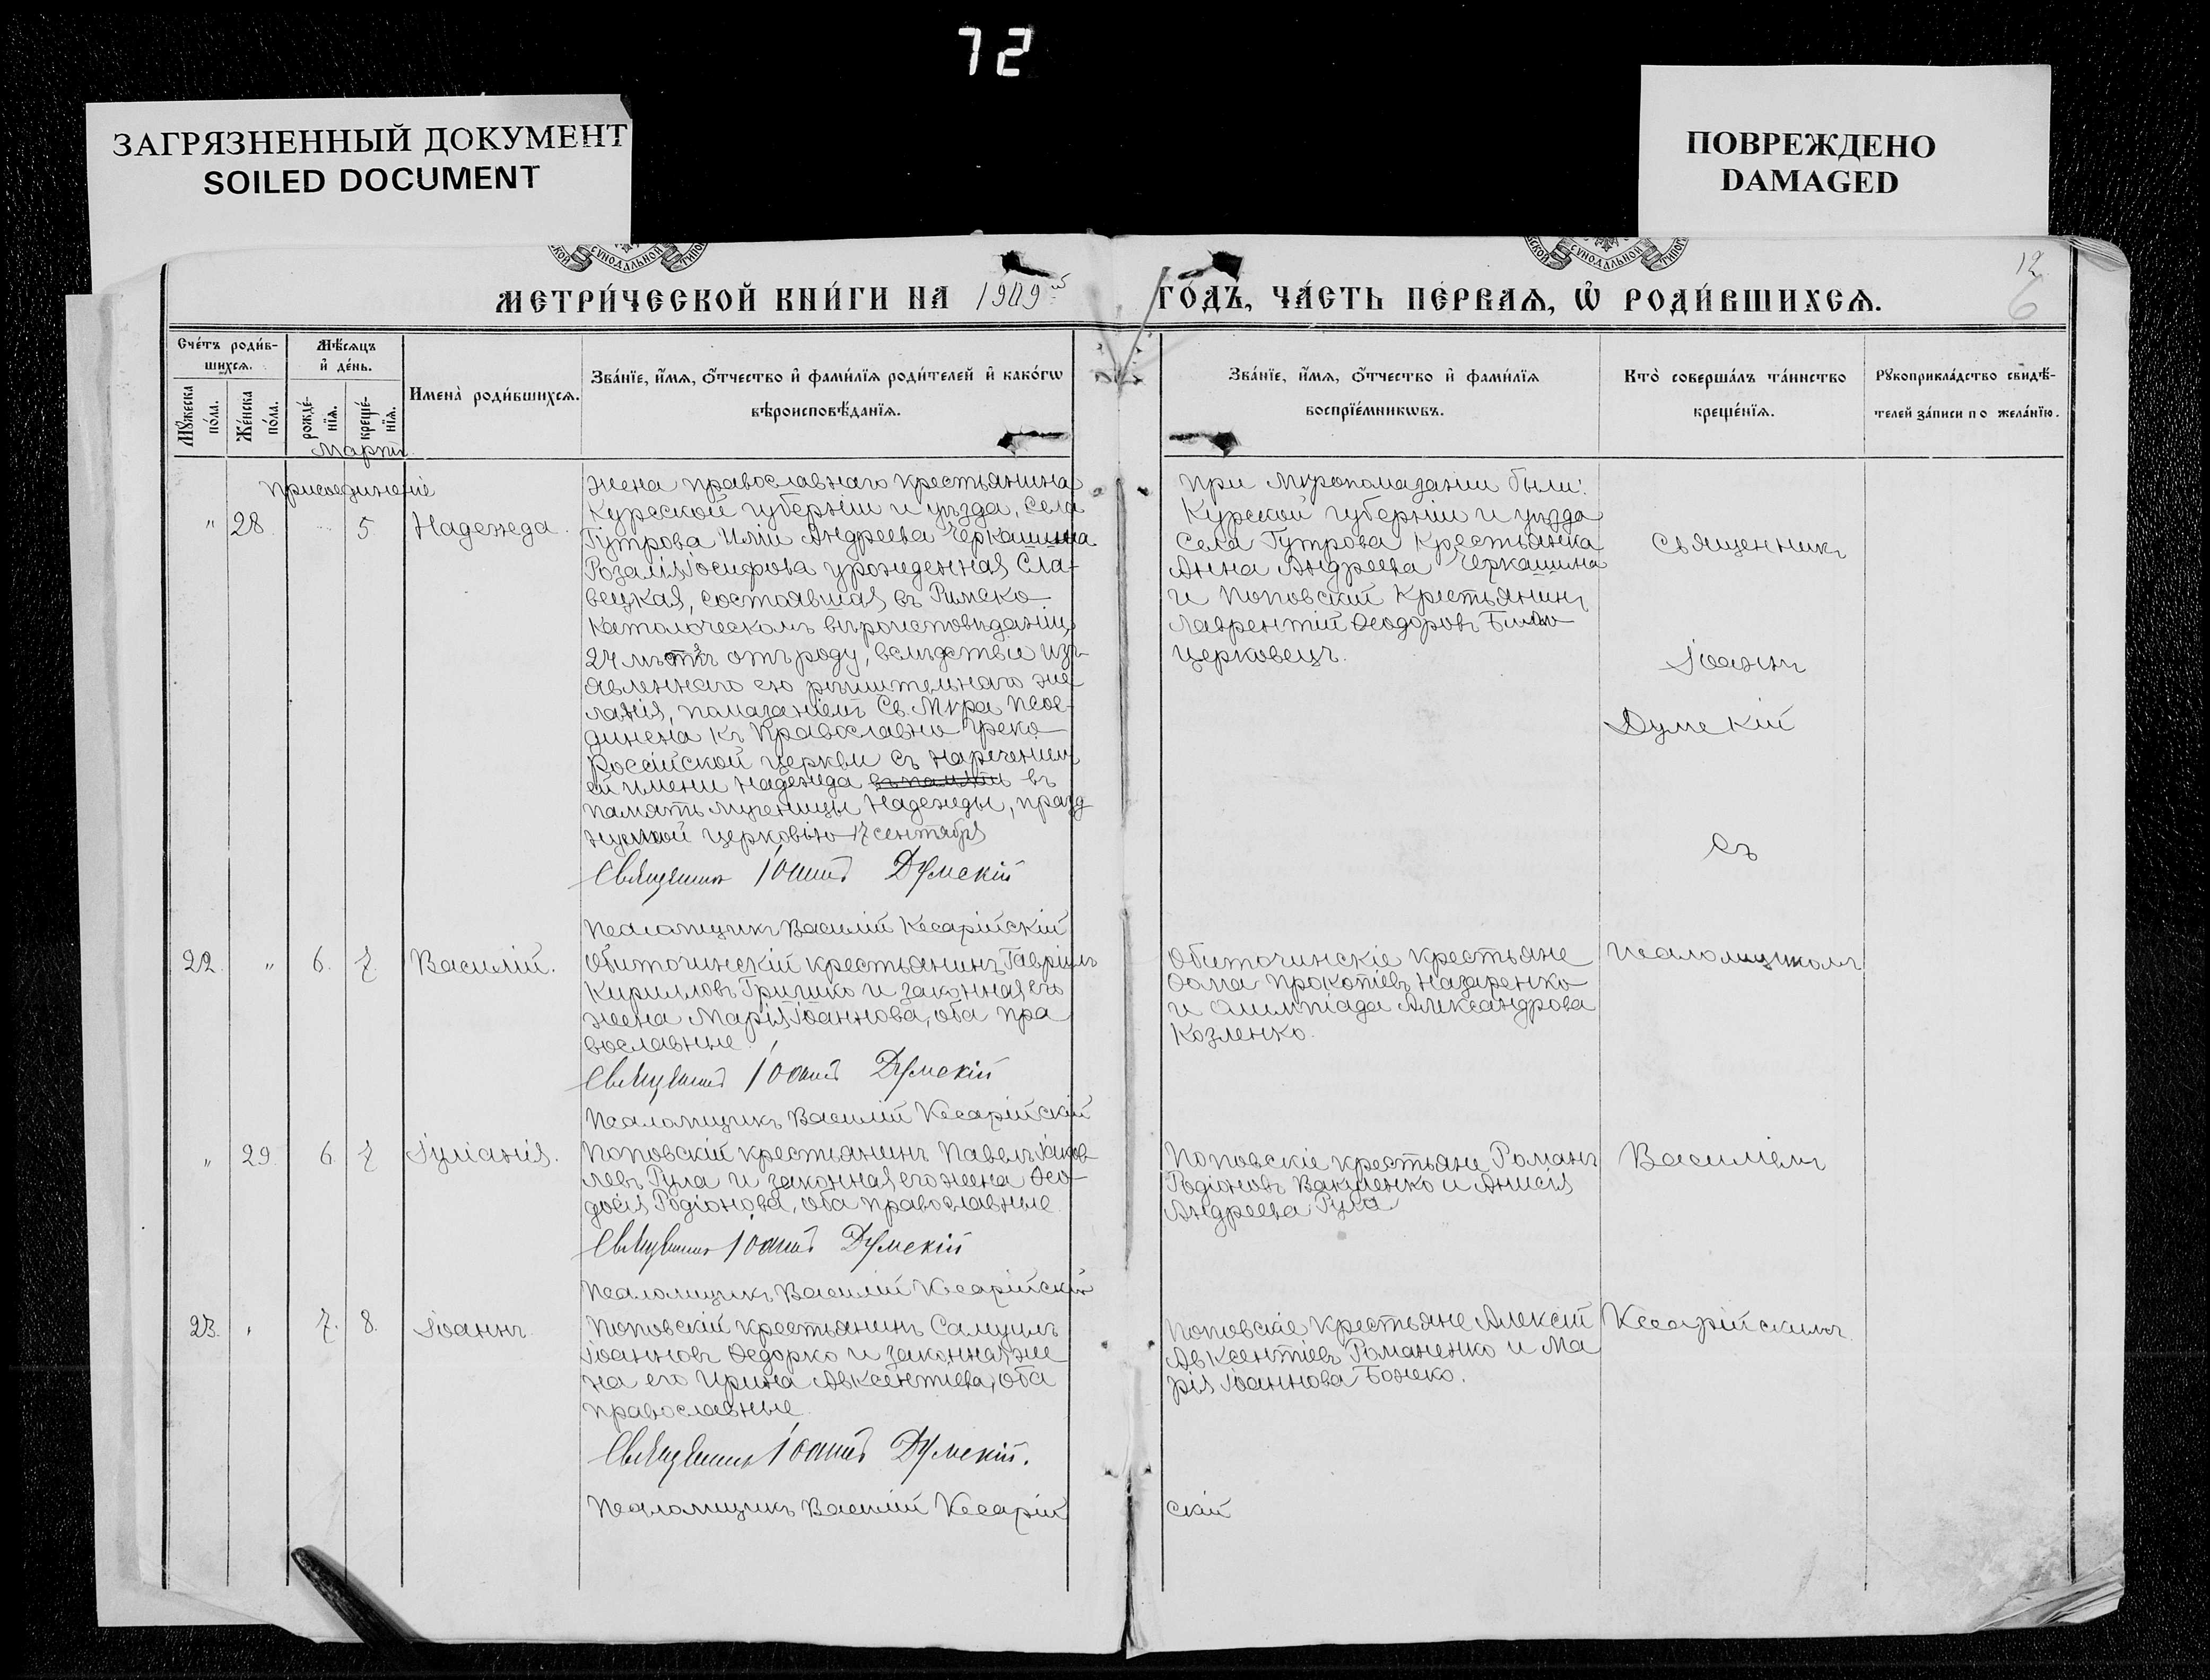 72
ЗАГРЯЗНЕННЫЙ ДОКУМЕНТ
SOILED DOCUMENT
ПОВРЕЖДЕНО
DAMAGED
12
6
МЕТРИ́ЧЕСКОЙ КНИ́ГИ НА 1909й
ГО́ДЪ, ЧА́СТЬ ПЕ́РВАѦ, Ѡ РОДИ́ВШИХСѦ.
Сче́тъ роди́в-
шихсѧ.
Мѣ́сѧцъ
и҆ де́нь.
Мꙋ́жеска
по́ла.
Же́нска
по́ла.
рожде́-
нїѧ.
креще́-
нїѧ.
Имена̀ роди́вшихсѧ.
Зва́нїе, и҆́мѧ, ѻ҆́тчество и҆ фами́лїѧ роди́телей и҆ како́гѡ
вѣроисповѣ́данїѧ.
Зва́нїе, и҆́мѧ, ѻ҆́тчество и҆ фами́лїѧ
воспрїе́мникѡвъ.
Кто̀ соверша́лъ та́инство
креще́нїѧ.
Рꙋкоприкла́дство свидѣ́-
телей за́писи по жела́нїю.
Мартъ
Присоединеніе
" 28 5. Надежда.
жена православнаго крестьянина
Курской губерніи и уѣзда, села
Гутрова Иліи Андреева Черкашина
Розалія Іосифова урожденная Сла-
вецкая, состоявшая въ Римско
Католоческомъ вѣроисповѣданіи,
24 лѣтъ отъ роду, вслѣдствіе изъ-
явленнаго ею рѣшительнаго же
ланія, помазаніемъ Св. Мѵра псое-
динена къ Православно Греко
Россійской церкви съ нареченіемъ
ей имени Надежда въ память въ
память мученицы Надежды, празд
нуемой церковію 17 сентября
Священникъ Іоаннъ Думскій
Псаломщикъ Василій Кесарійскій
При Мѵропомазании были:
Курской губерніи и уѣзда
Села Гутрова Крестьянка
Анна Андреева Черкашина
и Поповскій Крестьянинъ
Лаврентій Ѳеодоровъ Било
церковецъ.
Священникъ
Іоаннъ
Думскій
съ
22. " 6. 7. Василій.
Обиточинскій крестьянинъ Гавріилъ
Кирилловъ Гришко и законная его
жена Марія Іоаннова, оба пра
вославные.
Священникъ Іоаннъ Думскій
Псаломщикъ Василій Кесарійскій
Обиточинскіе крестьяне
Ѳома Прокопіевъ Назаренко
и Олимпіада Александрова
Козленко.
псаломщикомъ
" 29. 6. 7. Іуліанія.
Поповскій крестьянинъ Павелъ Іаков
левъ Рула и законная его жена Ѳео-
досія Родіонова, оба православные.
Священникъ Іоаннъ Думскій
Псаломщикъ Василій Кесарійскій
Поповскіе крестьяне Романъ
Родіоновъ Вакуленко и Анисія
Андреева Рула
Василіемъ
23. " 7. 8. Іоаннъ.
Поповскій крестьянинъ Самуилъ
Іоанновъ Ѳедорко и законная же
на его Ирина Авксентіева, оба
православные.
Священникъ Іоаннъ Думскій.
Псаломщикъ Василій Кесарій
скій
Поповскіе Крестьяне Алексій
Авксентіевъ Романенко и Ма
рія Іоаннова Божко.
Кесарійскимъ.